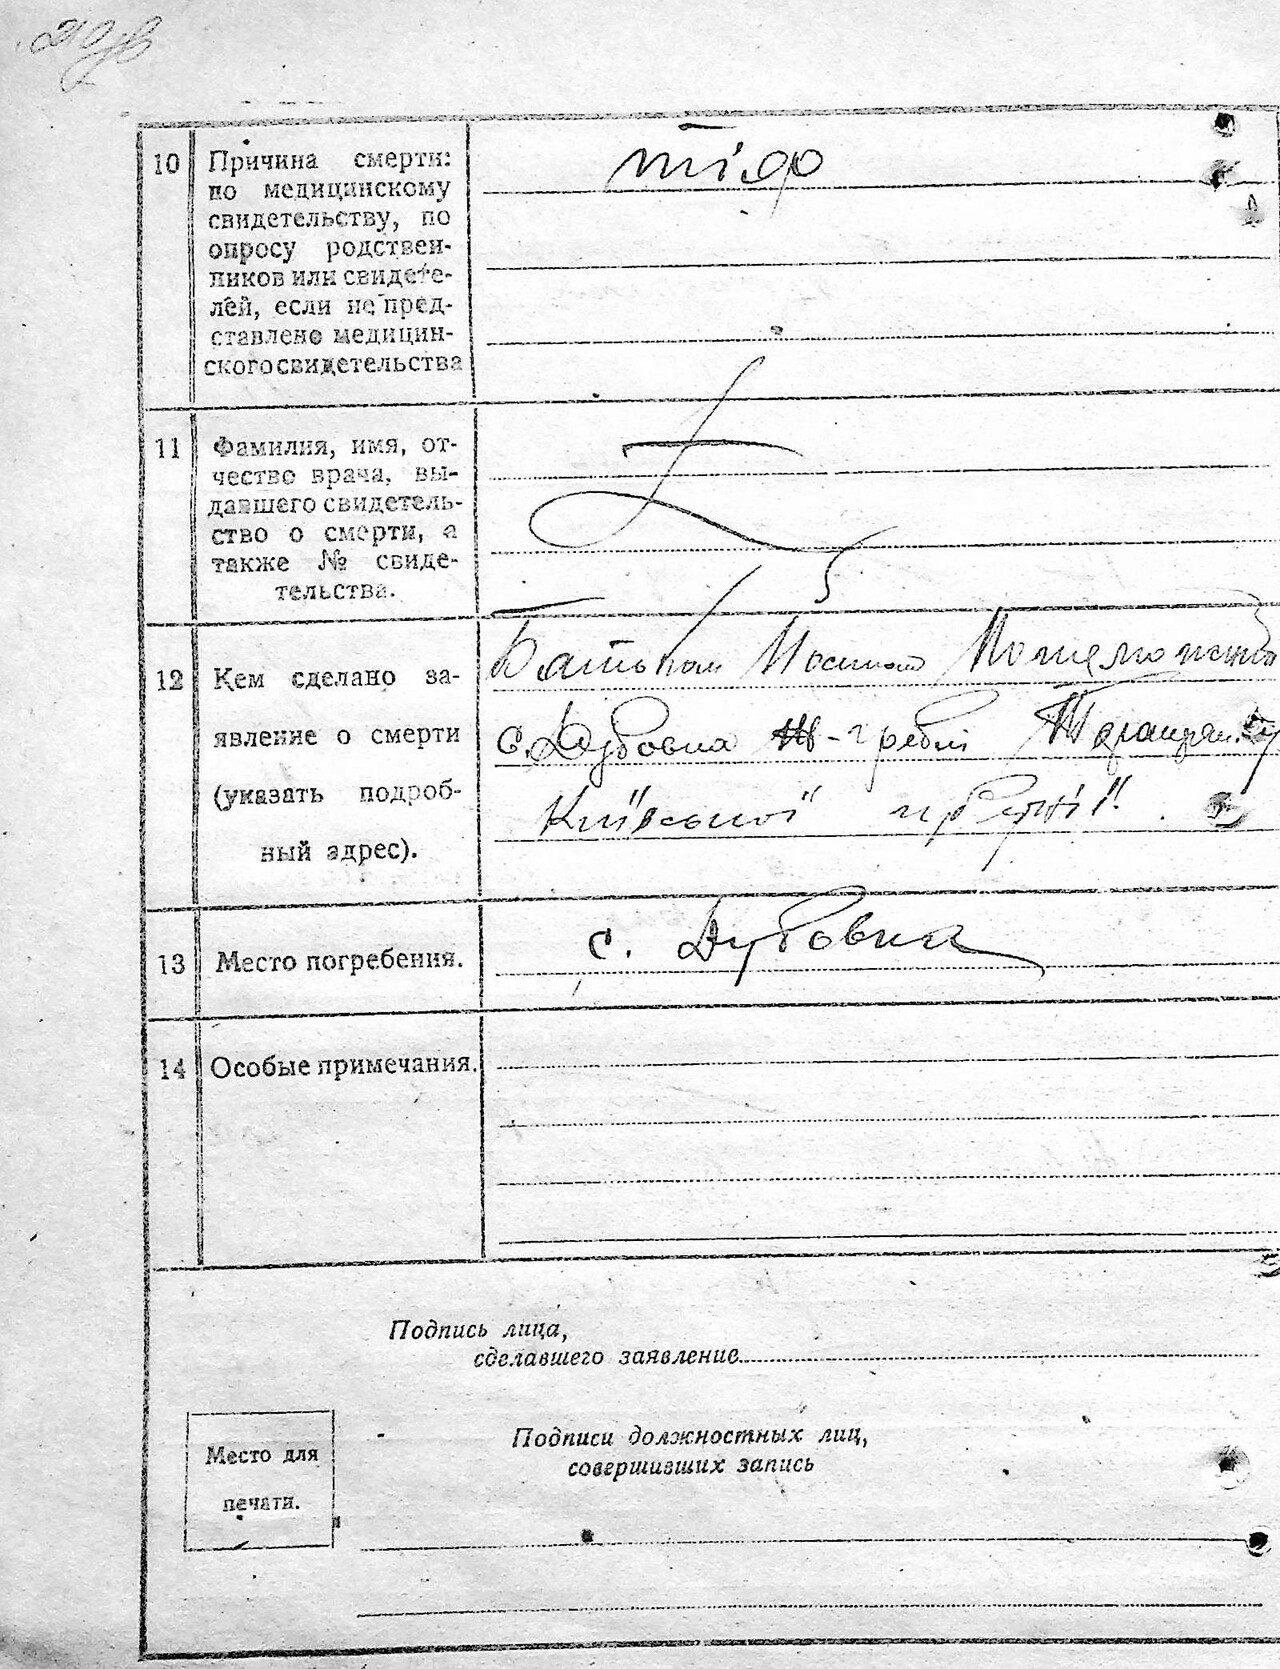 10 Причина смерти:
по медицинскому
свидетельству, по
опросу родствен-
ников или свидете-
лей, если не пред-
ставлено медицин-
ского свидетельства
тіф
11 Фамилия, имя, от-
чество врача, вы-
давшего свидетель-
ство о смерти, а
также № свиде-
тельства.
12 Кем сделано за-
явление о смерти
(указать подроб-
ный адрес).
Батьком
с. Дубовка
Київської
13 Место погребения.
с. Дубовка
14 Особые примечания.
Подпись лица,
сделавшего заявление
Место для
печати.
Подписи должностных лиц,
совершивших запись